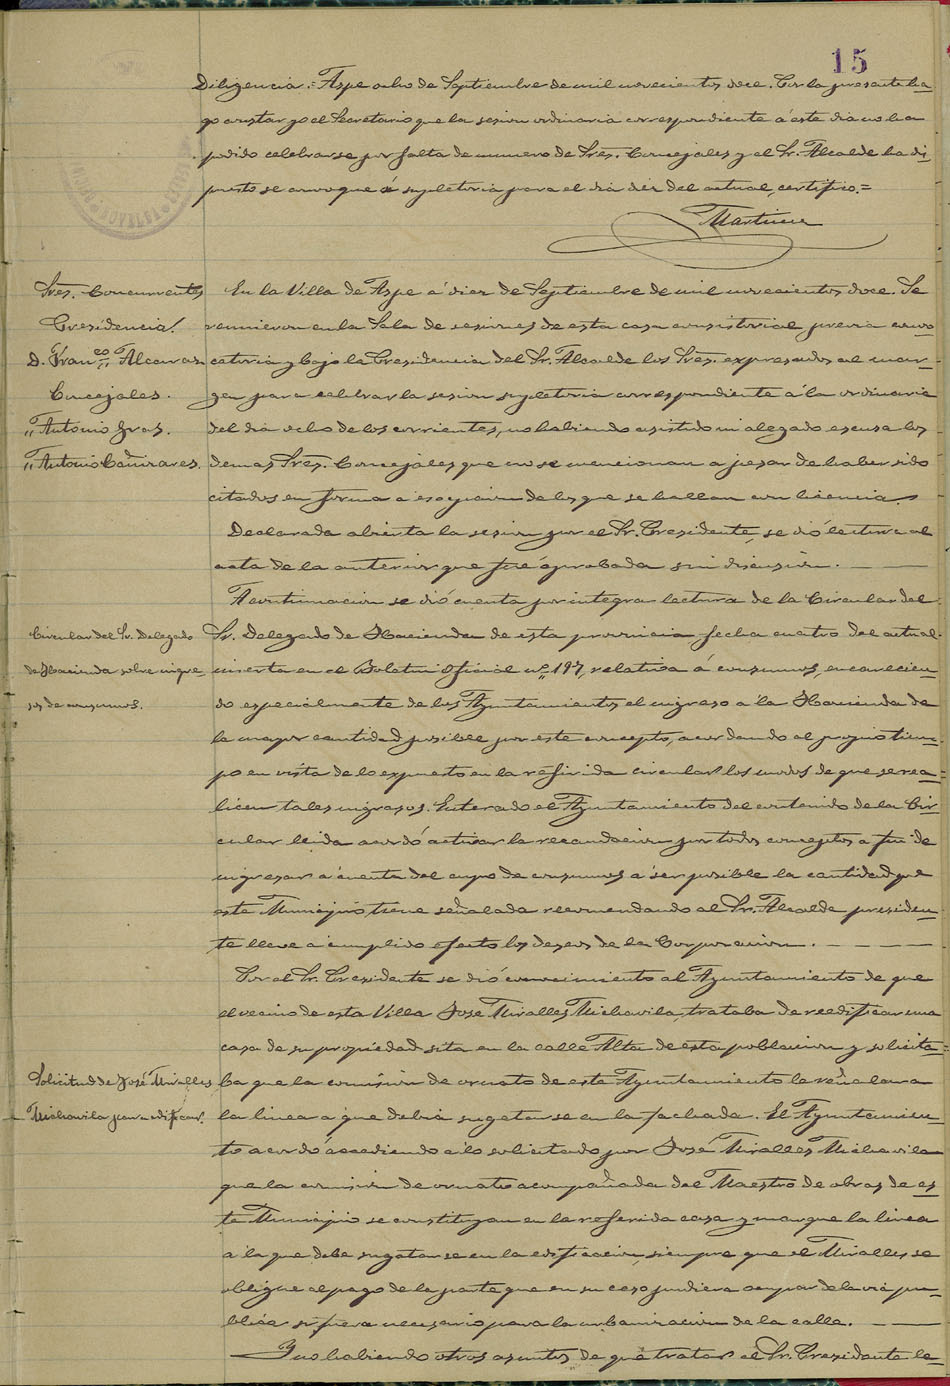 15
Diligencia.= Aspe ocho de Septiembre de mil novecientos doce. Por la presente ha-
go constar yo el Secretario que la sesion ordinaria correspondiente á este dia no ha
podido celebrarse por falta de numero de Sres. Concejales y el Sr. Alcalde ha dis-
puesto se convoque á supletoria para el dia diez del actual, certifico.=
Martinez
Sres. Concurrentes
Presidencia.
D. Franco. Alcaraz
Concejales.
" Antonio Gras.
" Antonio Cañizares.
En la Villa de Aspe á diez de Septiembre de mil novecientos doce. Se
reunieron en la Sala de sesiones de esta casa consistorial previa convo-
catoria y bajo la Presidencia del Sr. Alcalde los Sres. expresados al mar-
gen para celebrar la sesion supletoria correspondiente á la ordinaria
del dia ocho de los corrientes, no habiendo asistido ni alegado escusa los
demas Sres. Concejales que no se mencionan a pesar de haber sido
citados en forma a escepcion de los que se hallan con licencia.
Declarada abierta la sesion por el Sr. Presidente, se dió lectura al
acta de la anterior que fué aprobada sin discusion.
A continuacion se dió cuenta por integra lectura de la Circular del
Circular del Sr. Delegado
de Hacienda sobre ingre-
sos de consumos.
Sr. Delegado de Hacienda de esta provincia fecha cuatro del actual
inserta en el Boletin Oficial nº 197, relativa á consumos, encarecien-
do especialmente de los Ayuntamientos el ingreso a la Hacienda de
la mayor cantidad posible por este concepto, acordando al propio tiem-
po en vista de lo expuesto en la referida circular los modos de que se rea-
licen tales ingresos. Enterado el Ayuntamiento del contenido de la Cir-
cular leida acordó activar la recaudacion por todos conceptos a fin de
ingresar á cuenta del cupo de consumos á ser posible la cantidad que
este Municipio tiene señalada recomendando al Sr. Alcalde presiden-
te lleve a cumplido efecto los deseos de la Corporacion.
Por el Sr. Presidente se dió conocimiento al Ayuntamiento de que
el vecino de esta Villa José Miralles Michavila, trataba de reedificar una
casa de su propiedad sita en la calle Alta de esta poblacion y solicita-
Solicitud de José Miralles
Michavila para edificar.
ba que la comision de ornato de este Ayuntamiento le señalara
la linea a que debia sugetarse en la fachada. El Ayuntamien-
to acordó accediendo a lo solicitado por José Miralles Michavila
que la comision de ornato acompañada del Maestro de obras de es-
te Municipio se constituyan en la referida casa y marque la linea
a la que debe sugetarse en la edificacion, siempre que el Miralles se
obligue al pago de la parte que en su caso pudiera ocupar de la via pu-
blica si fuera necesario para la urbanizacion de la calle.
Y no habiendo otros asuntos de que tratar el Sr. Presidente le-